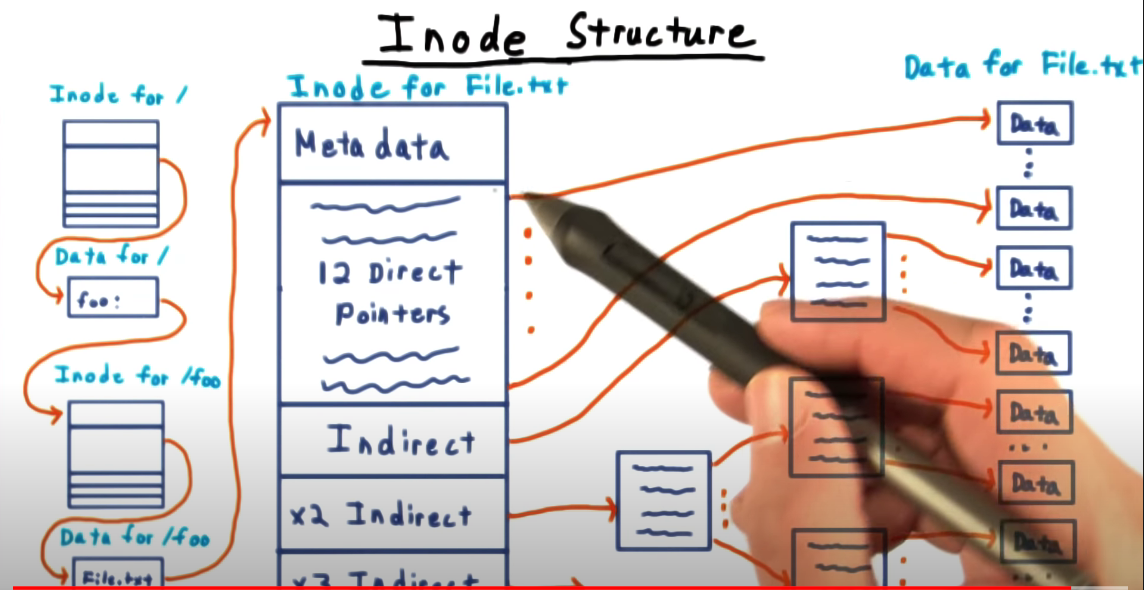 Inode Structure
Inode for /
Data for /
foo:
Inode for /foo
Data for /foo
File.txt
Inode for File.txt
Meta data
12 Direct
Pointers
Indirect
x2 Indirect
x3 Indirect
Data for File.txt
Data
Data
Data
Data
Data
Data
Data